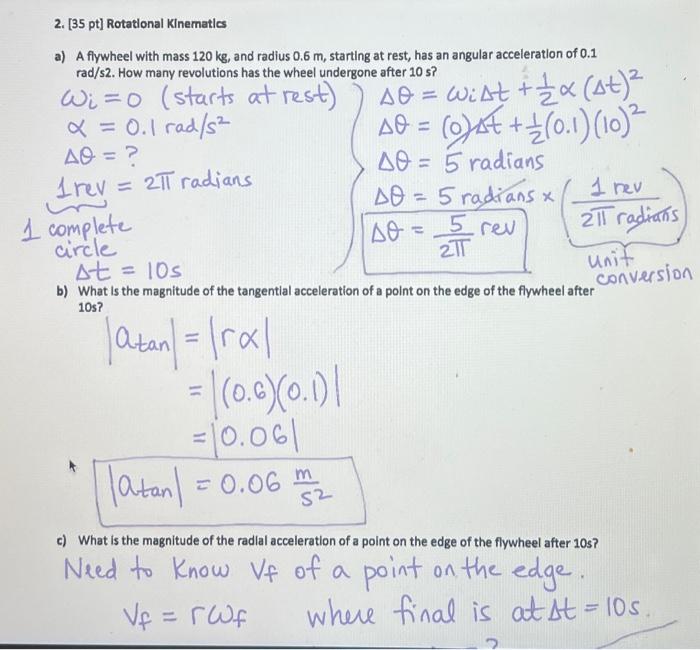 2. [35 pt] Rotational Kinematics
a) A flywheel with mass 120 kg, and radius 0.6 m, starting at rest, has an angular acceleration of 0.1
rad/s2. How many revolutions has the wheel undergone after 10 s?
ωi = 0 (starts at rest)
α = 0.1 rad/s²
Δθ = ?
1 rev = 2π radians
1 complete
circle
Δt = 10s
Δθ = ωiΔt + ½α(Δt)²
Δθ = (0)Δt + ½(0.1)(10)²
Δθ = 5 radians
Δθ = 5 radians × (1 rev / 2π radians)
Δθ = 5/2π rev
unit
conversion
b) What is the magnitude of the tangential acceleration of a point on the edge of the flywheel after
10s?
|atan| = |rα|
= |(0.6)(0.1)|
= |0.06|
|atan| = 0.06 m/s²
c) What is the magnitude of the radial acceleration of a point on the edge of the flywheel after 10s?
Need to know Vf of a point on the edge.
Vf = rωf where final is at Δt = 10s.